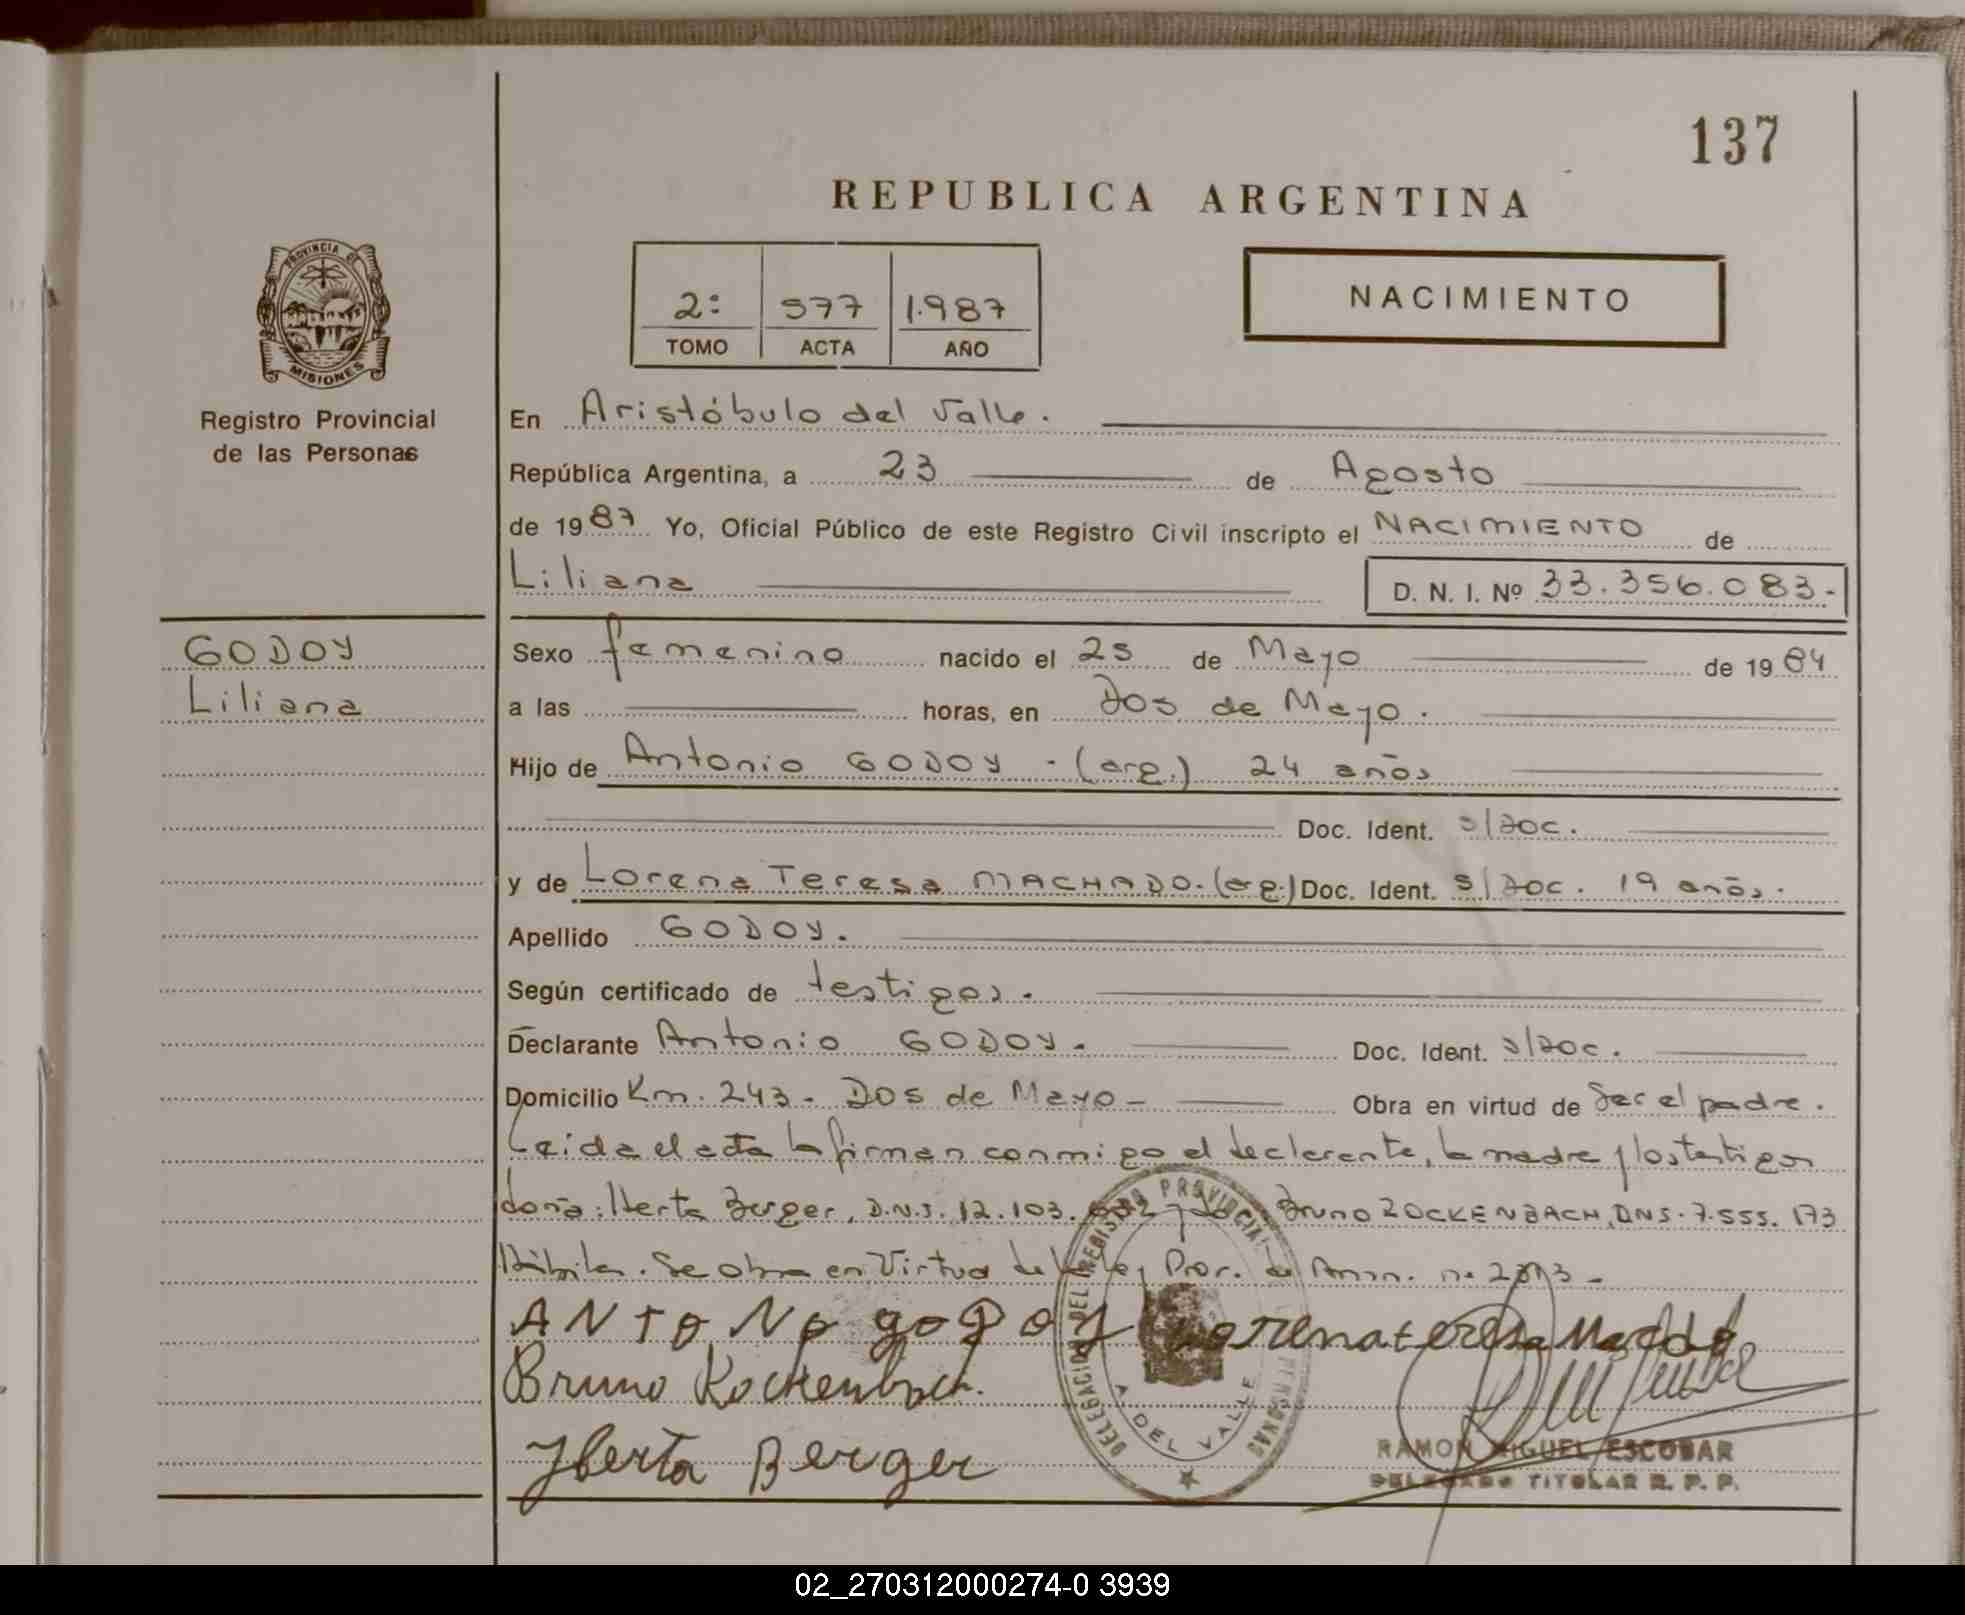 137
REPUBLICA ARGENTINA
PROVINCIA DE
MISIONES
Registro Provincial
de las Personas
2: 577 1.987
TOMO ACTA AÑO
NACIMIENTO
En Aristóbulo del Valle.
República Argentina, a 23 de Agosto
de 1987 Yo, Oficial Público de este Registro Civil inscripto el NACIMIENTO de
Liliana D. N. I. Nº 33.356.083-
GODOY
Liliana
Sexo femenino nacido el 25 de Mayo de 1984
a las horas, en Dos de Mayo.
Hijo de Antonio GODOY - (arg.) 24 años
Doc. Ident. s/doc.
y de Lorena Teresa MACHADO. (arg.) Doc. Ident. s/doc. 19 años.
Apellido GODOY.
Según certificado de testigos.
Declarante Antonio GODOY. Doc. Ident. s/doc.
Domicilio Km. 243- Dos de Mayo- Obra en virtud de ser el padre.
Leida el acta la firman conmigo el declarante, la madre y los testigos
doña: Herta Berger, D.N.I. 12.103. Bruno ROCKENBACH, DNI. 7.555.173
Hábiles. Se obra en Virtud de Ley Pror. de Amn. nº
ANToNio goDoy Lorena teresa Machado
Bruno Rockenbach.
Herta Berger
DELEGACION DEL REGISTRO PROVINCIAL PERSONAS
A. DEL VALLE
RAMON MIGUEL ESCOBAR
DELEGADO TITULAR R. P. P.
02_270312000274-0 3939